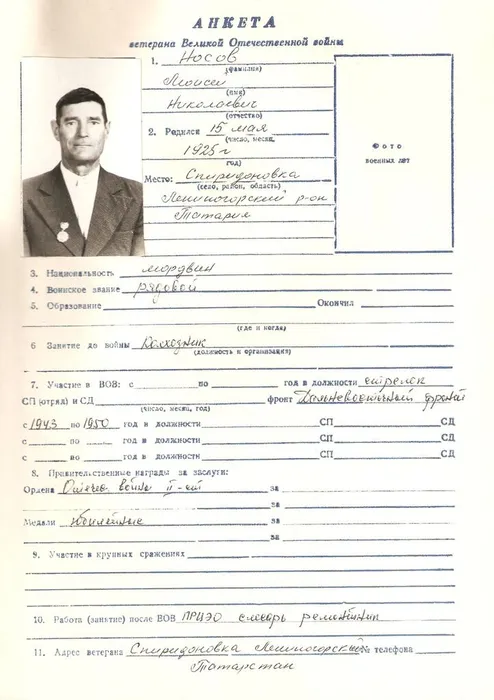 АНКЕТА
ветерана Великой Отечественной войны
1. Носов
(фамилия)
Моисей
(имя)
Николаевич
(отчество)
2. Родился 15 мая
(число, месяц,
1925 г
год)
Место: Спиридоновка
(село, район, область)
Лениногорский р-он
Татария
Фото
военных лет
3. Национальность мордвин
4. Воинское звание рядовой
5. Образование Окончил
(где и когда)
6 Занятие до войны Колхозник
(должность и организация)
7. Участие в ВОВ: с по год в должности стрелок
СП (отряд) и СД фронт Дальневосточный фронт
(число, месяц, год)
с 1943 по 1950 год в должности СП СД
с по год в должности СП СД
с по год в должности СП СД
8. Правительственные награды за заслуги:
Ордена Отечес. войны II-ст за
за
Медали юбилейные за
за
9. Участие в крупных сражениях
10. Работа (занятие) после ВОВ ПРЦЭО слесарь ремонтник
11. Адрес ветерана Спиридоновка Лениногорский № телефона
Татарстан